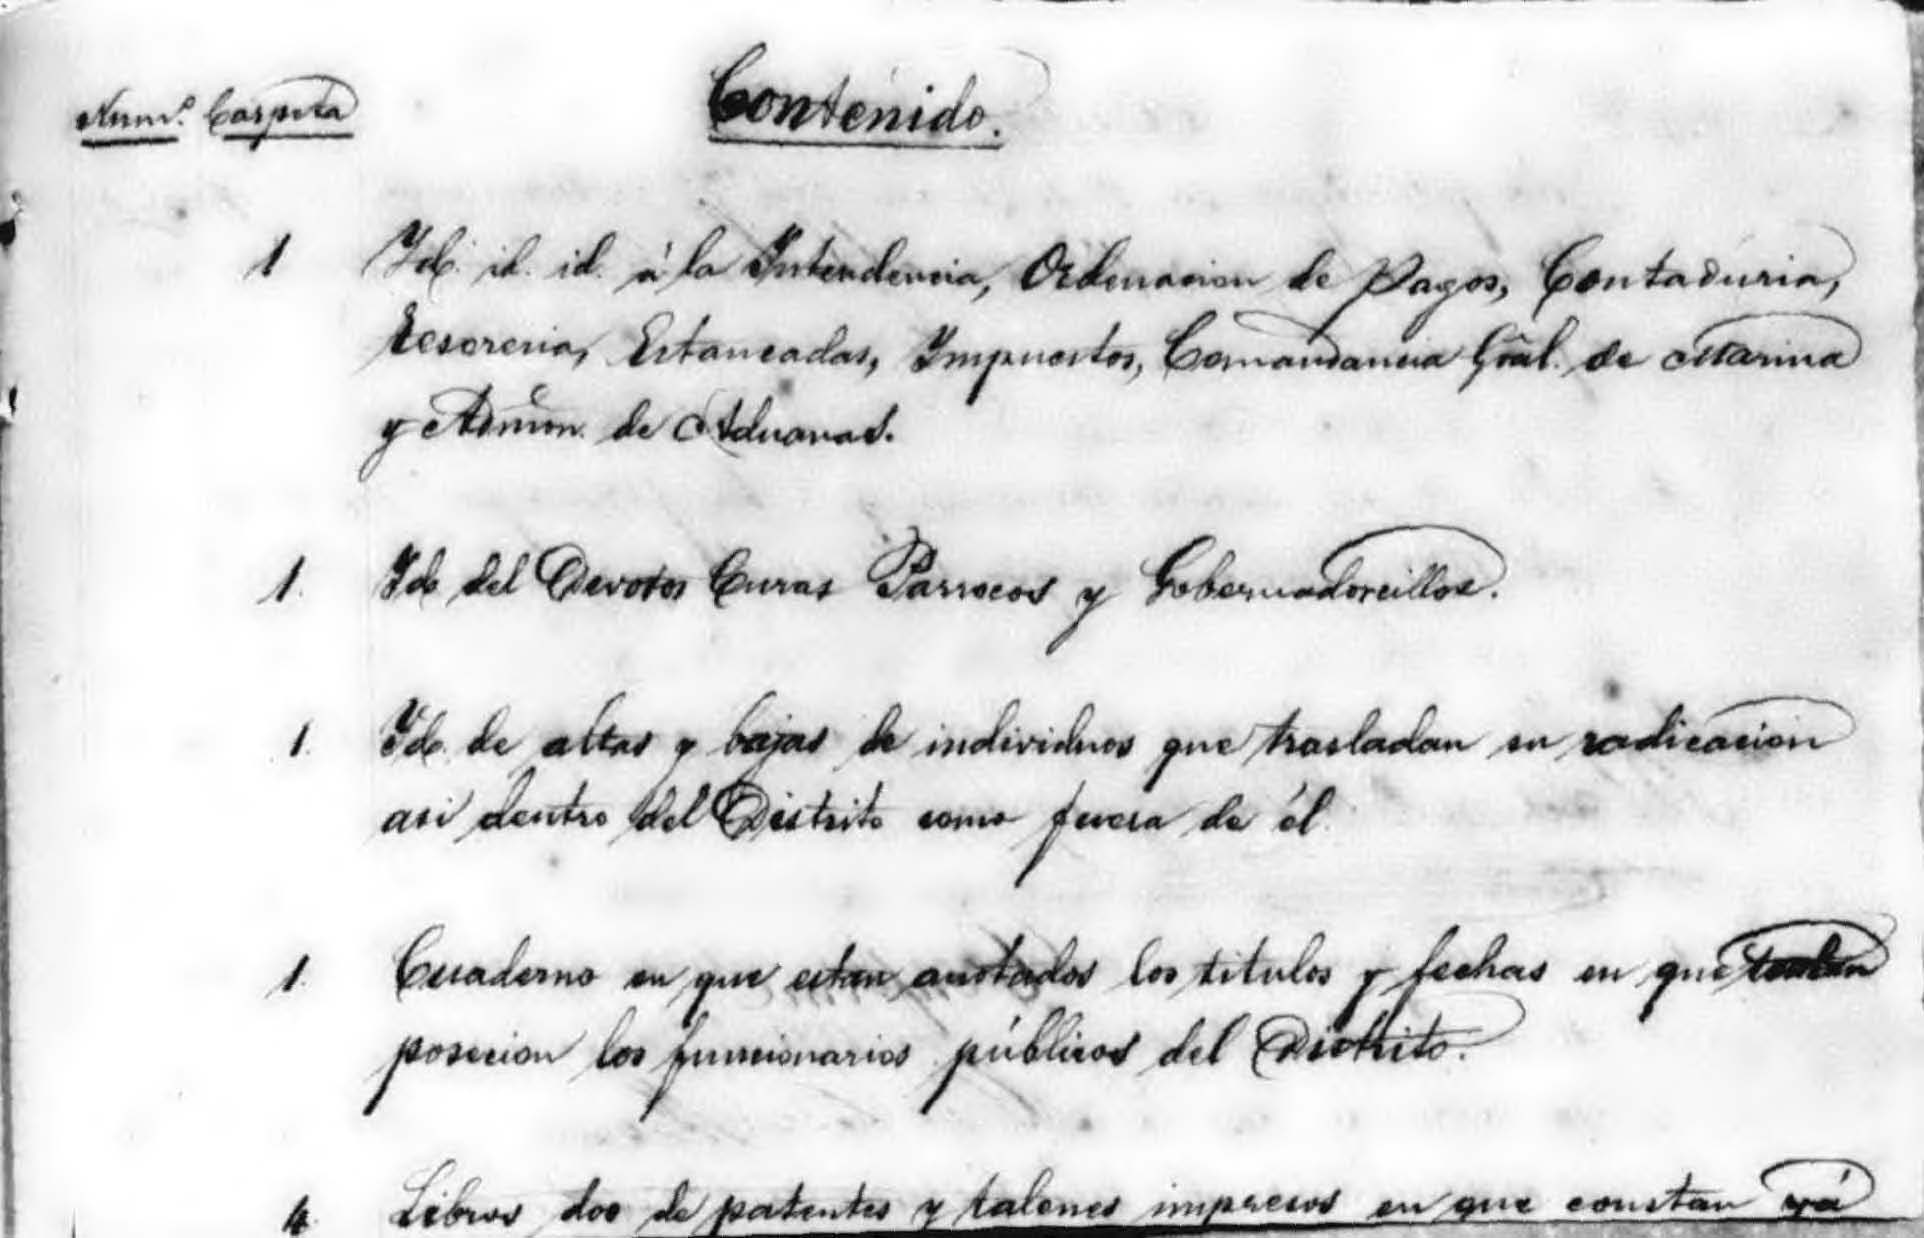 Num.º Carpeta Contenido.
1 Id. id. id. á la Intendencia, Ordenacion de Pagos, Contaduria,
Tesoreria, Estancadas, Impuestos, Comandancia Gral. de Marina
y Admon. de Aduanas.
1. Id. del Devotos Curas Parrocos y Gobernadorcillos.
1. Id. de altas y bajas de individuos que trasladan su radicacion
asi dentro del Distrito como fuera de él.
1. Cuaderno en que estan anotados los titulos y fechas en que
posecion los funcionarios públicos del Distrito.
4. Libros dos de patentes y talones impresos en que constan